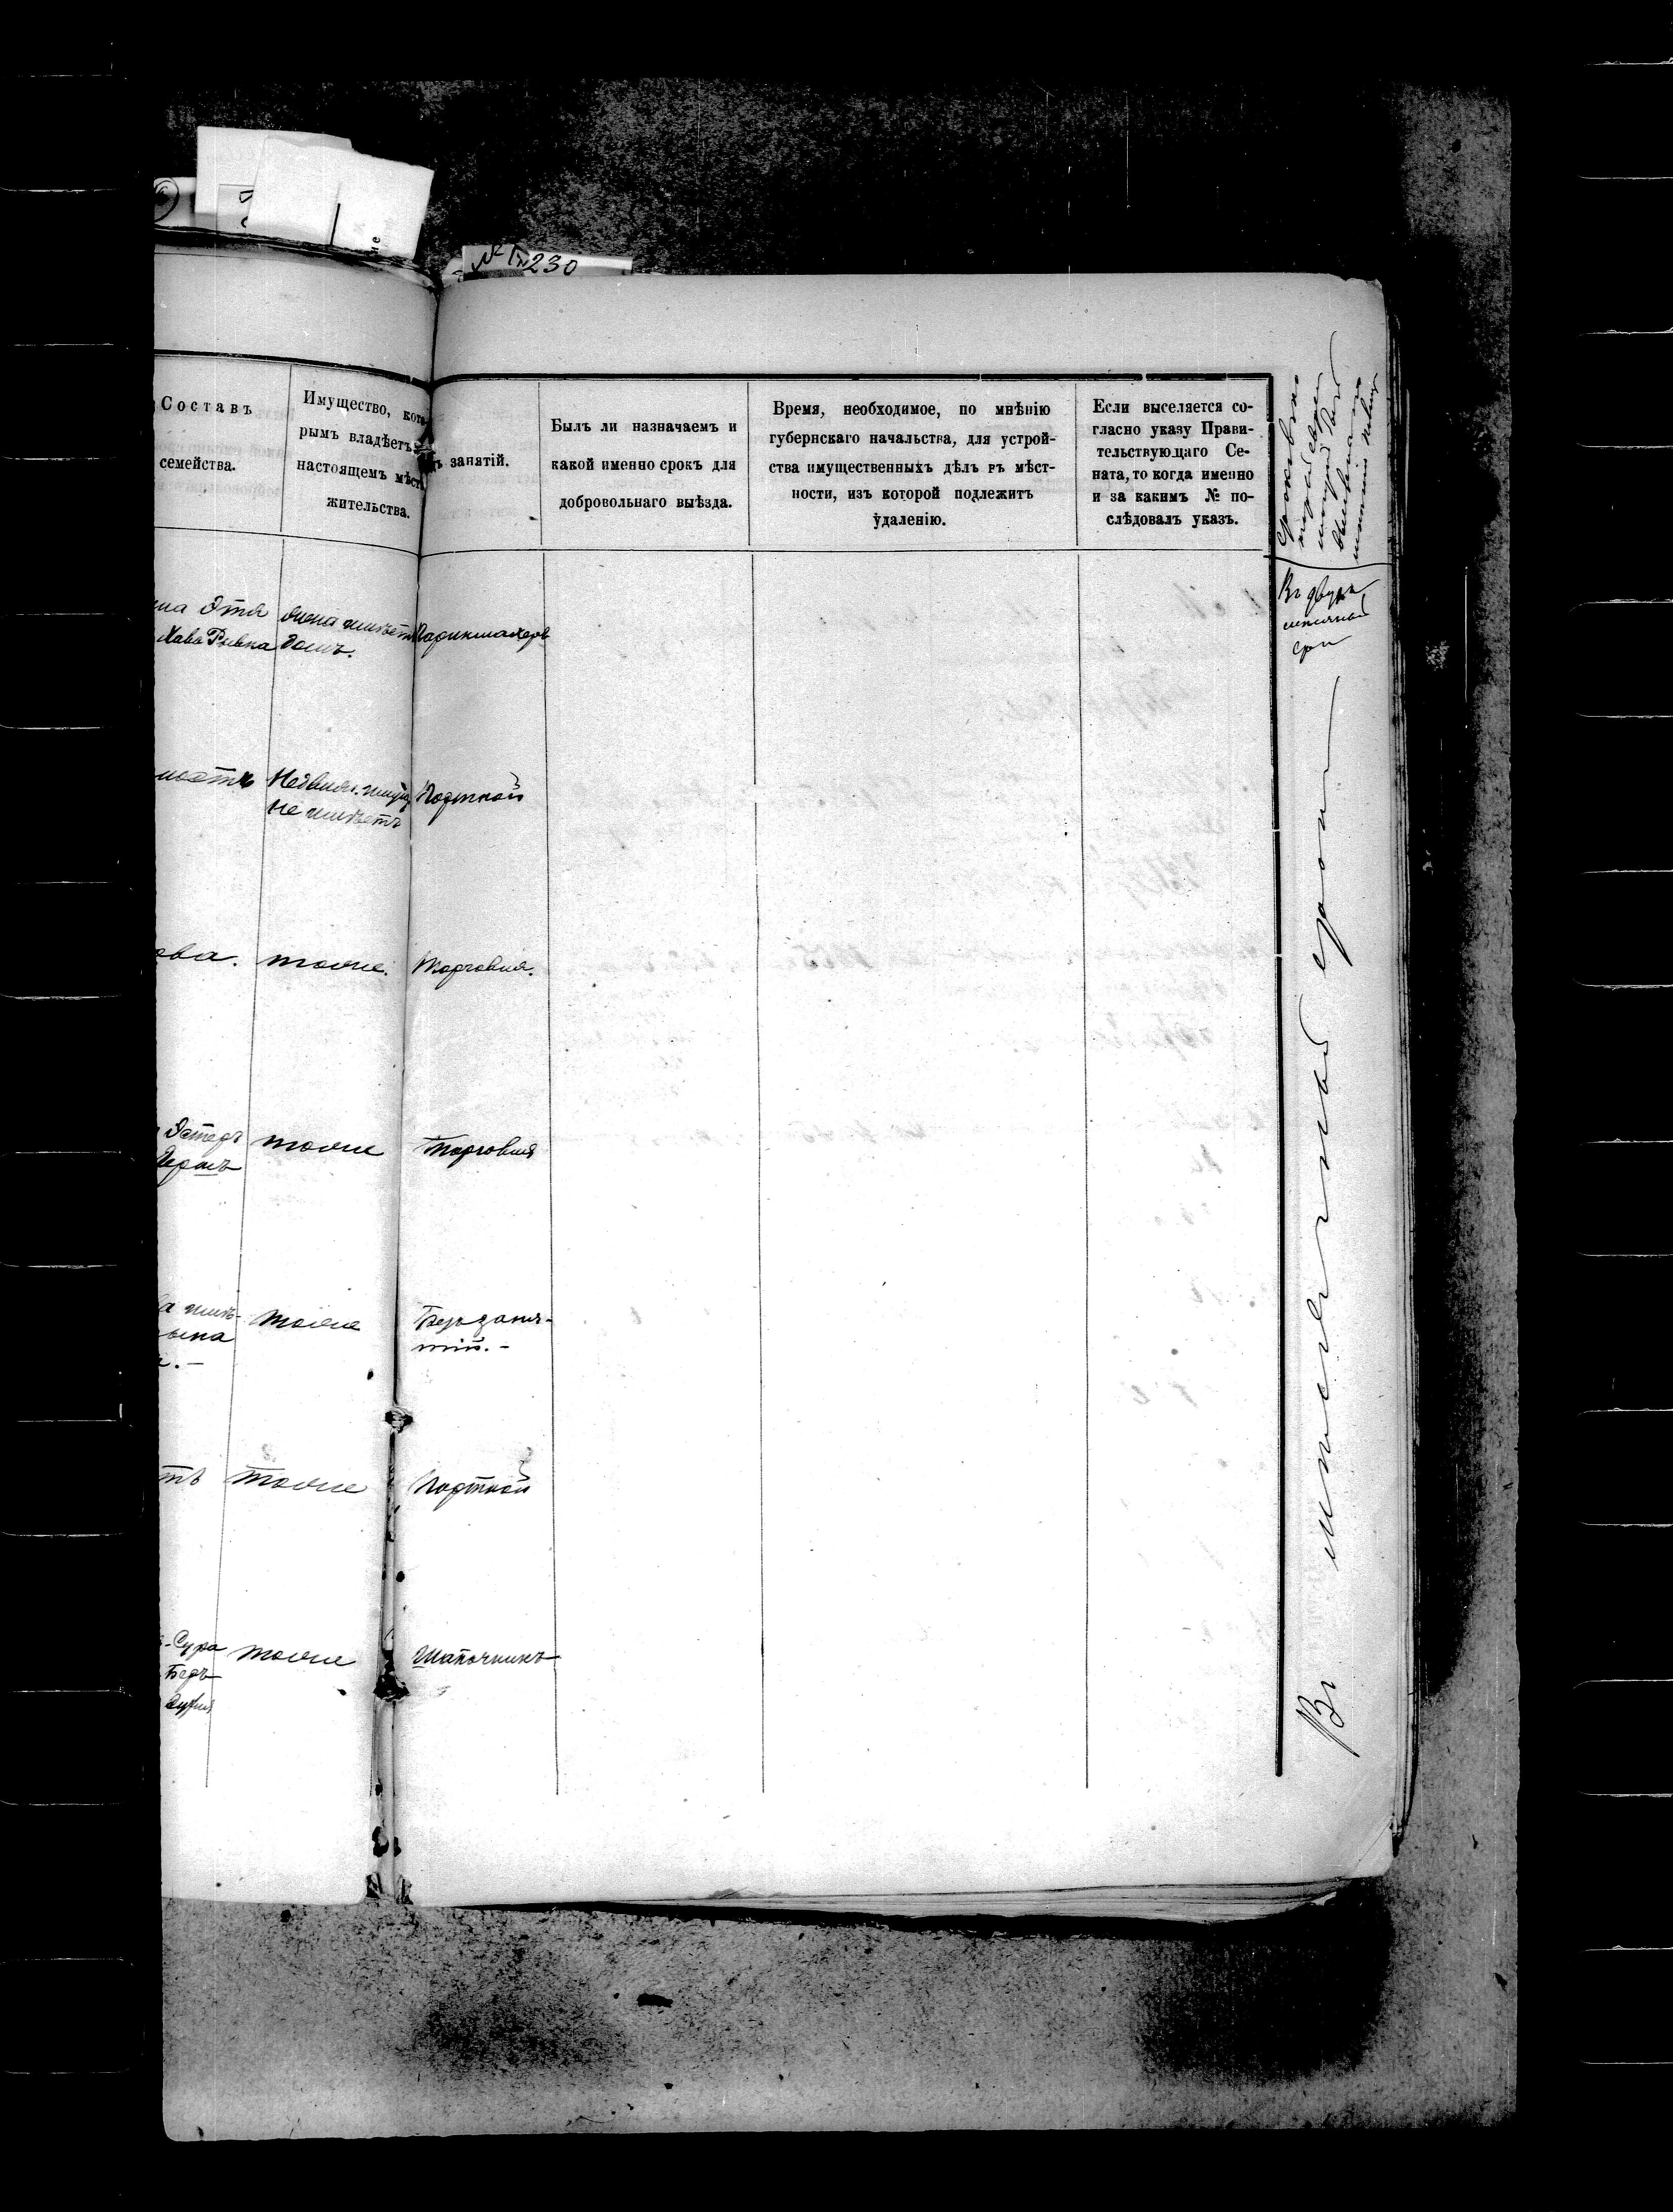 230
Составъ
семейства.
Имущество, кото-
рымъ владѣетъ
настоящемъ мѣст
жительства.
ъ занятій.
Былъ ли назначаемъ и
какой именно срокъ для
добровольнаго выѣзда.
Время, необходимое, по мнѣнію
губернскаго начальства, для устрой-
ства имущественныхъ дѣлъ въ мѣст-
ности, изъ которой подлежитъ
удаленію.
Если выселяется со-
гласно указу Прави-
тельствующаго Се-
ната, то когда именно
и за какимъ № по-
слѣдовалъ указъ.
Въ двухъ
мѣсячный
срокъ
на Этя жена имѣетъ Парикмахеръ
Хава Ривка домъ.
Недвиж. имущ Портной
не имѣетъ
ова. тоже. Торговля.
Эстеръ тоже Торговля
а имѣ- тоже Безъ заня-
сына тій.-
тъ тоже Портной
-Сура тоже Шапочникъ
Беръ
Въ мѣсячный срокъ